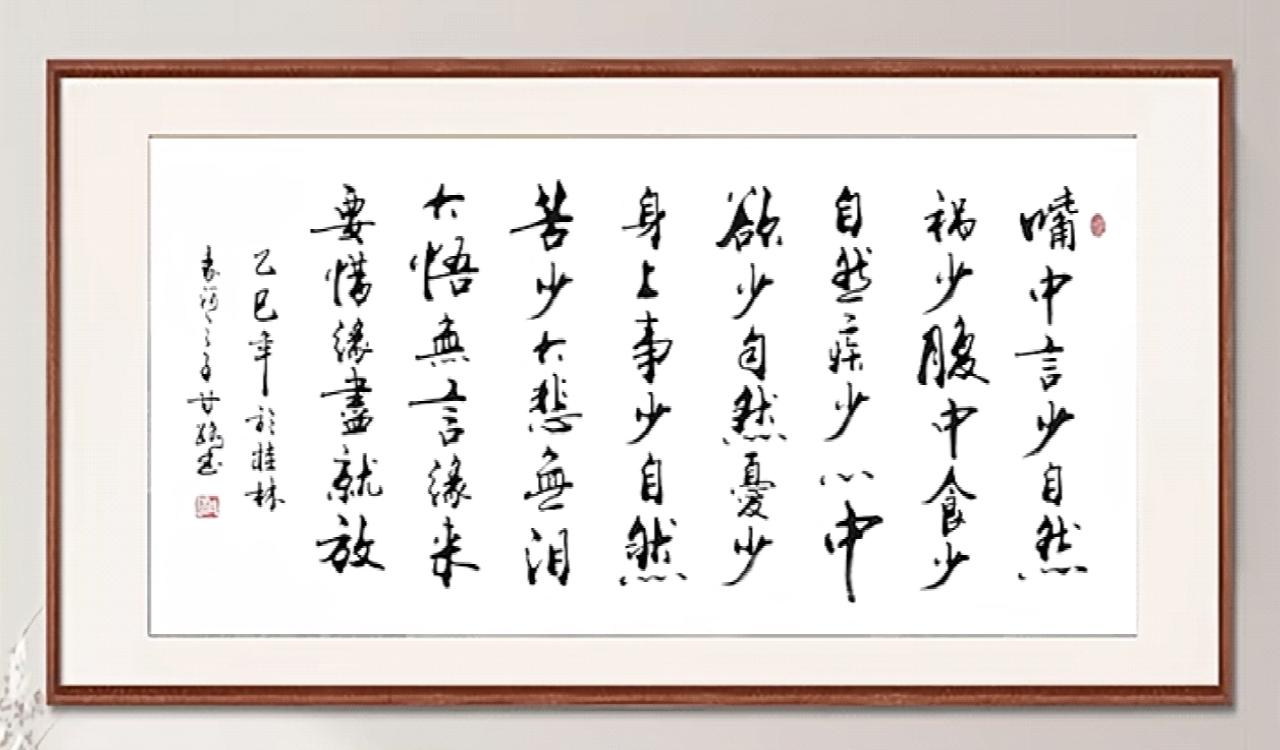 嘴中言少自然
祸少腹中食少
自然疾少心中
欲少自然憂少
身上事少自然
苦少大悲無泪
大悟無言缘来
要惜缘盡就放
乙巳年於桂林